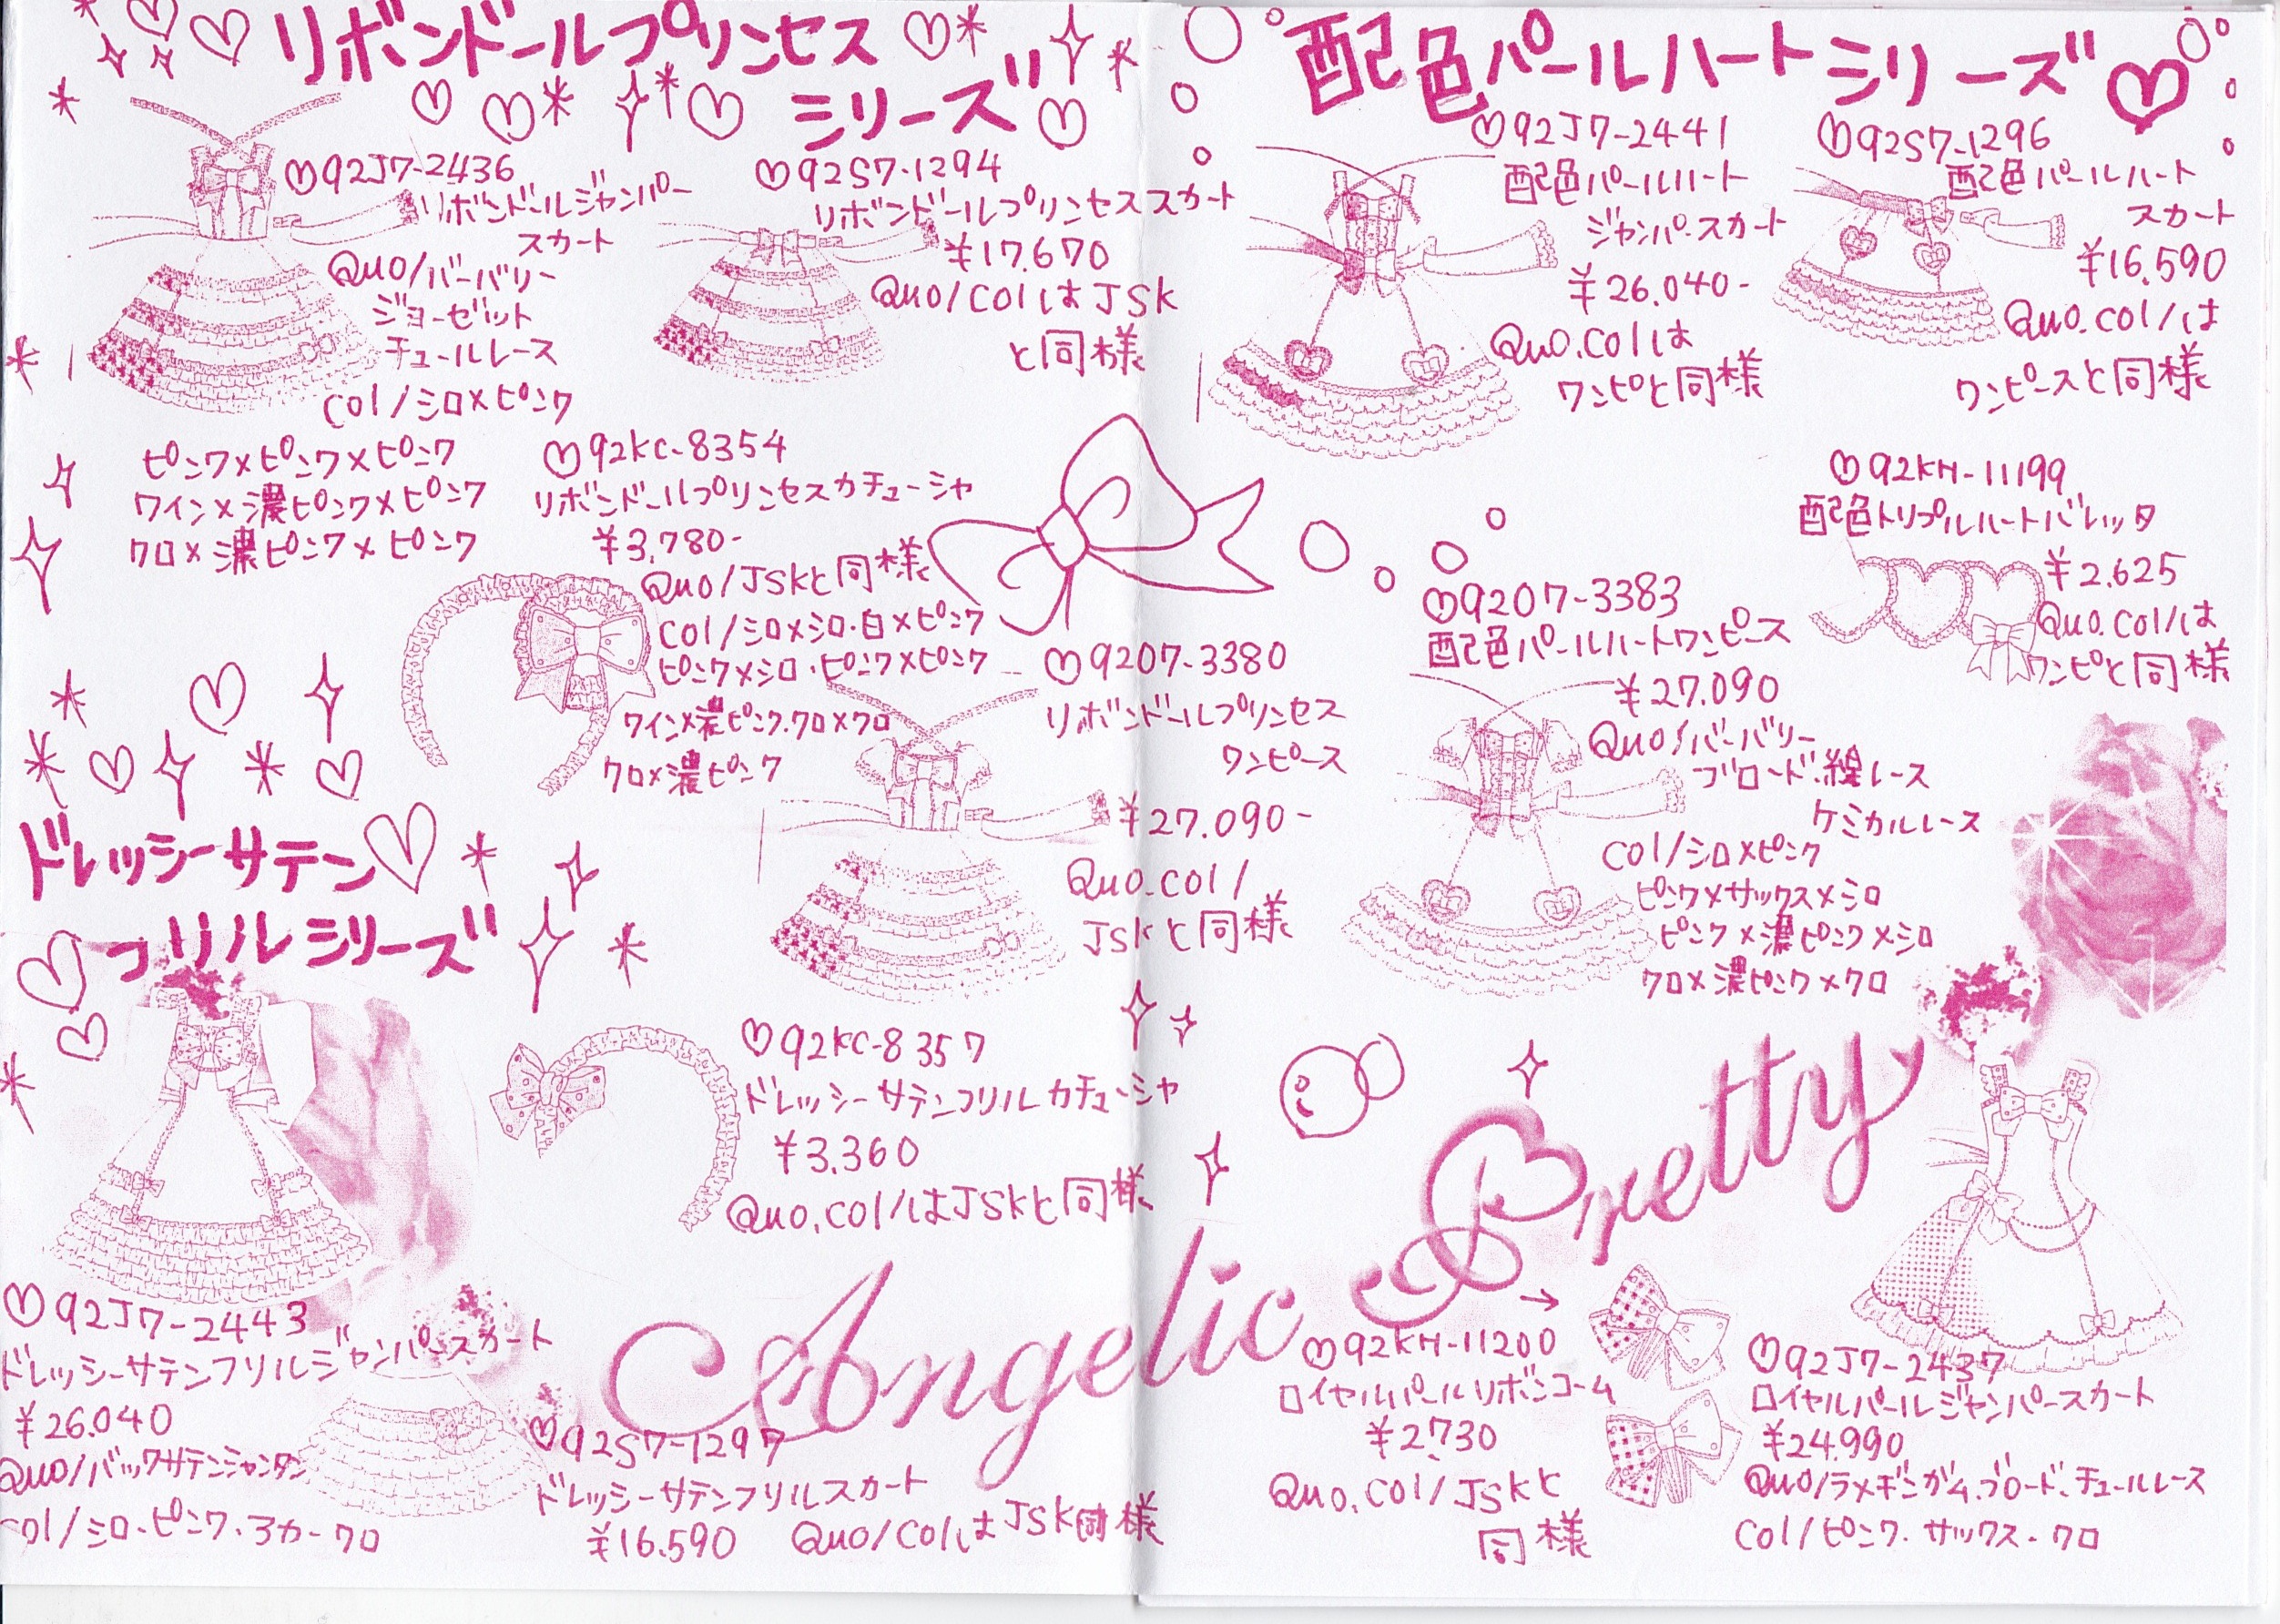 リボンドールプリンセス
シリーズ
♡92J7-2436
リボンドールジャンパー
スカート
Quo/バーバリー
ジョーゼット
チュールレース
Col/シロ×ピンク
ピンク×ピンク×ピンク
ワイン×濃ピンク×ピンク
クロ×濃ピンク×ピンク
♡92S7-1294
リボンドールプリンセススカート
¥17.670
Quo/ColはJSK
と同様
♡92KC-8354
リボンドールプリンセスカチューシャ
¥3.780-
Quo/JSKと同様
Col/シロ×シロ・白×ピンク
ピンク×シロ・ピンク×ピンク
ワイン×濃ピンク・クロ×クロ
クロ×濃ピンク
♡9207-3380
リボンドールプリンセス
ワンピース
¥27.090-
Quo.Col/
JSKと同様
ドレッシーサテン
フリルシリーズ
♡92J7-2443
ドレッシーサテンフリルジャンパースカート
¥26.040
Quo/バックサテンシャンタン
Col/シロ・ピンク・アカ・クロ
♡92KC-8357
ドレッシーサテンフリルカチューシャ
¥3.360
Quo.Col/はJSKと同様
♡92S7-1297
ドレッシーサテンフリルスカート
¥16.590
Quo/ColはJSK同様
配色パールハートシリーズ♡
♡92J7-2441
配色パールハート
ジャンパースカート
¥26.040-
Quo.Colは
ワンピと同様
♡92S7-1296
配色パールハート
スカート
¥16.590
Quo.Col/は
ワンピースと同様
♡92KH-11199
配色トリプルハートバレッタ
¥2.625
Quo.Col/は
ワンピと同様
♡9207-3383
配色パールハートワンピース
¥27.090
Quo/バーバリー
ブロード・綿レース
ケミカルレース
Col/シロ×ピンク
ピンク×サックス×シロ
ピンク×濃ピンク×シロ
クロ×濃ピンク×クロ
Angelic Pretty
→
♡92KH-11200
ロイヤルパールリボンコーム
¥2.730
Quo.Col/JSKと
同様
♡92J7-2437
ロイヤルパールジャンパースカート
¥24.990
Quo/ラメギンガム.ブロード.チュールレース
Col/ピンク・サックス・クロ